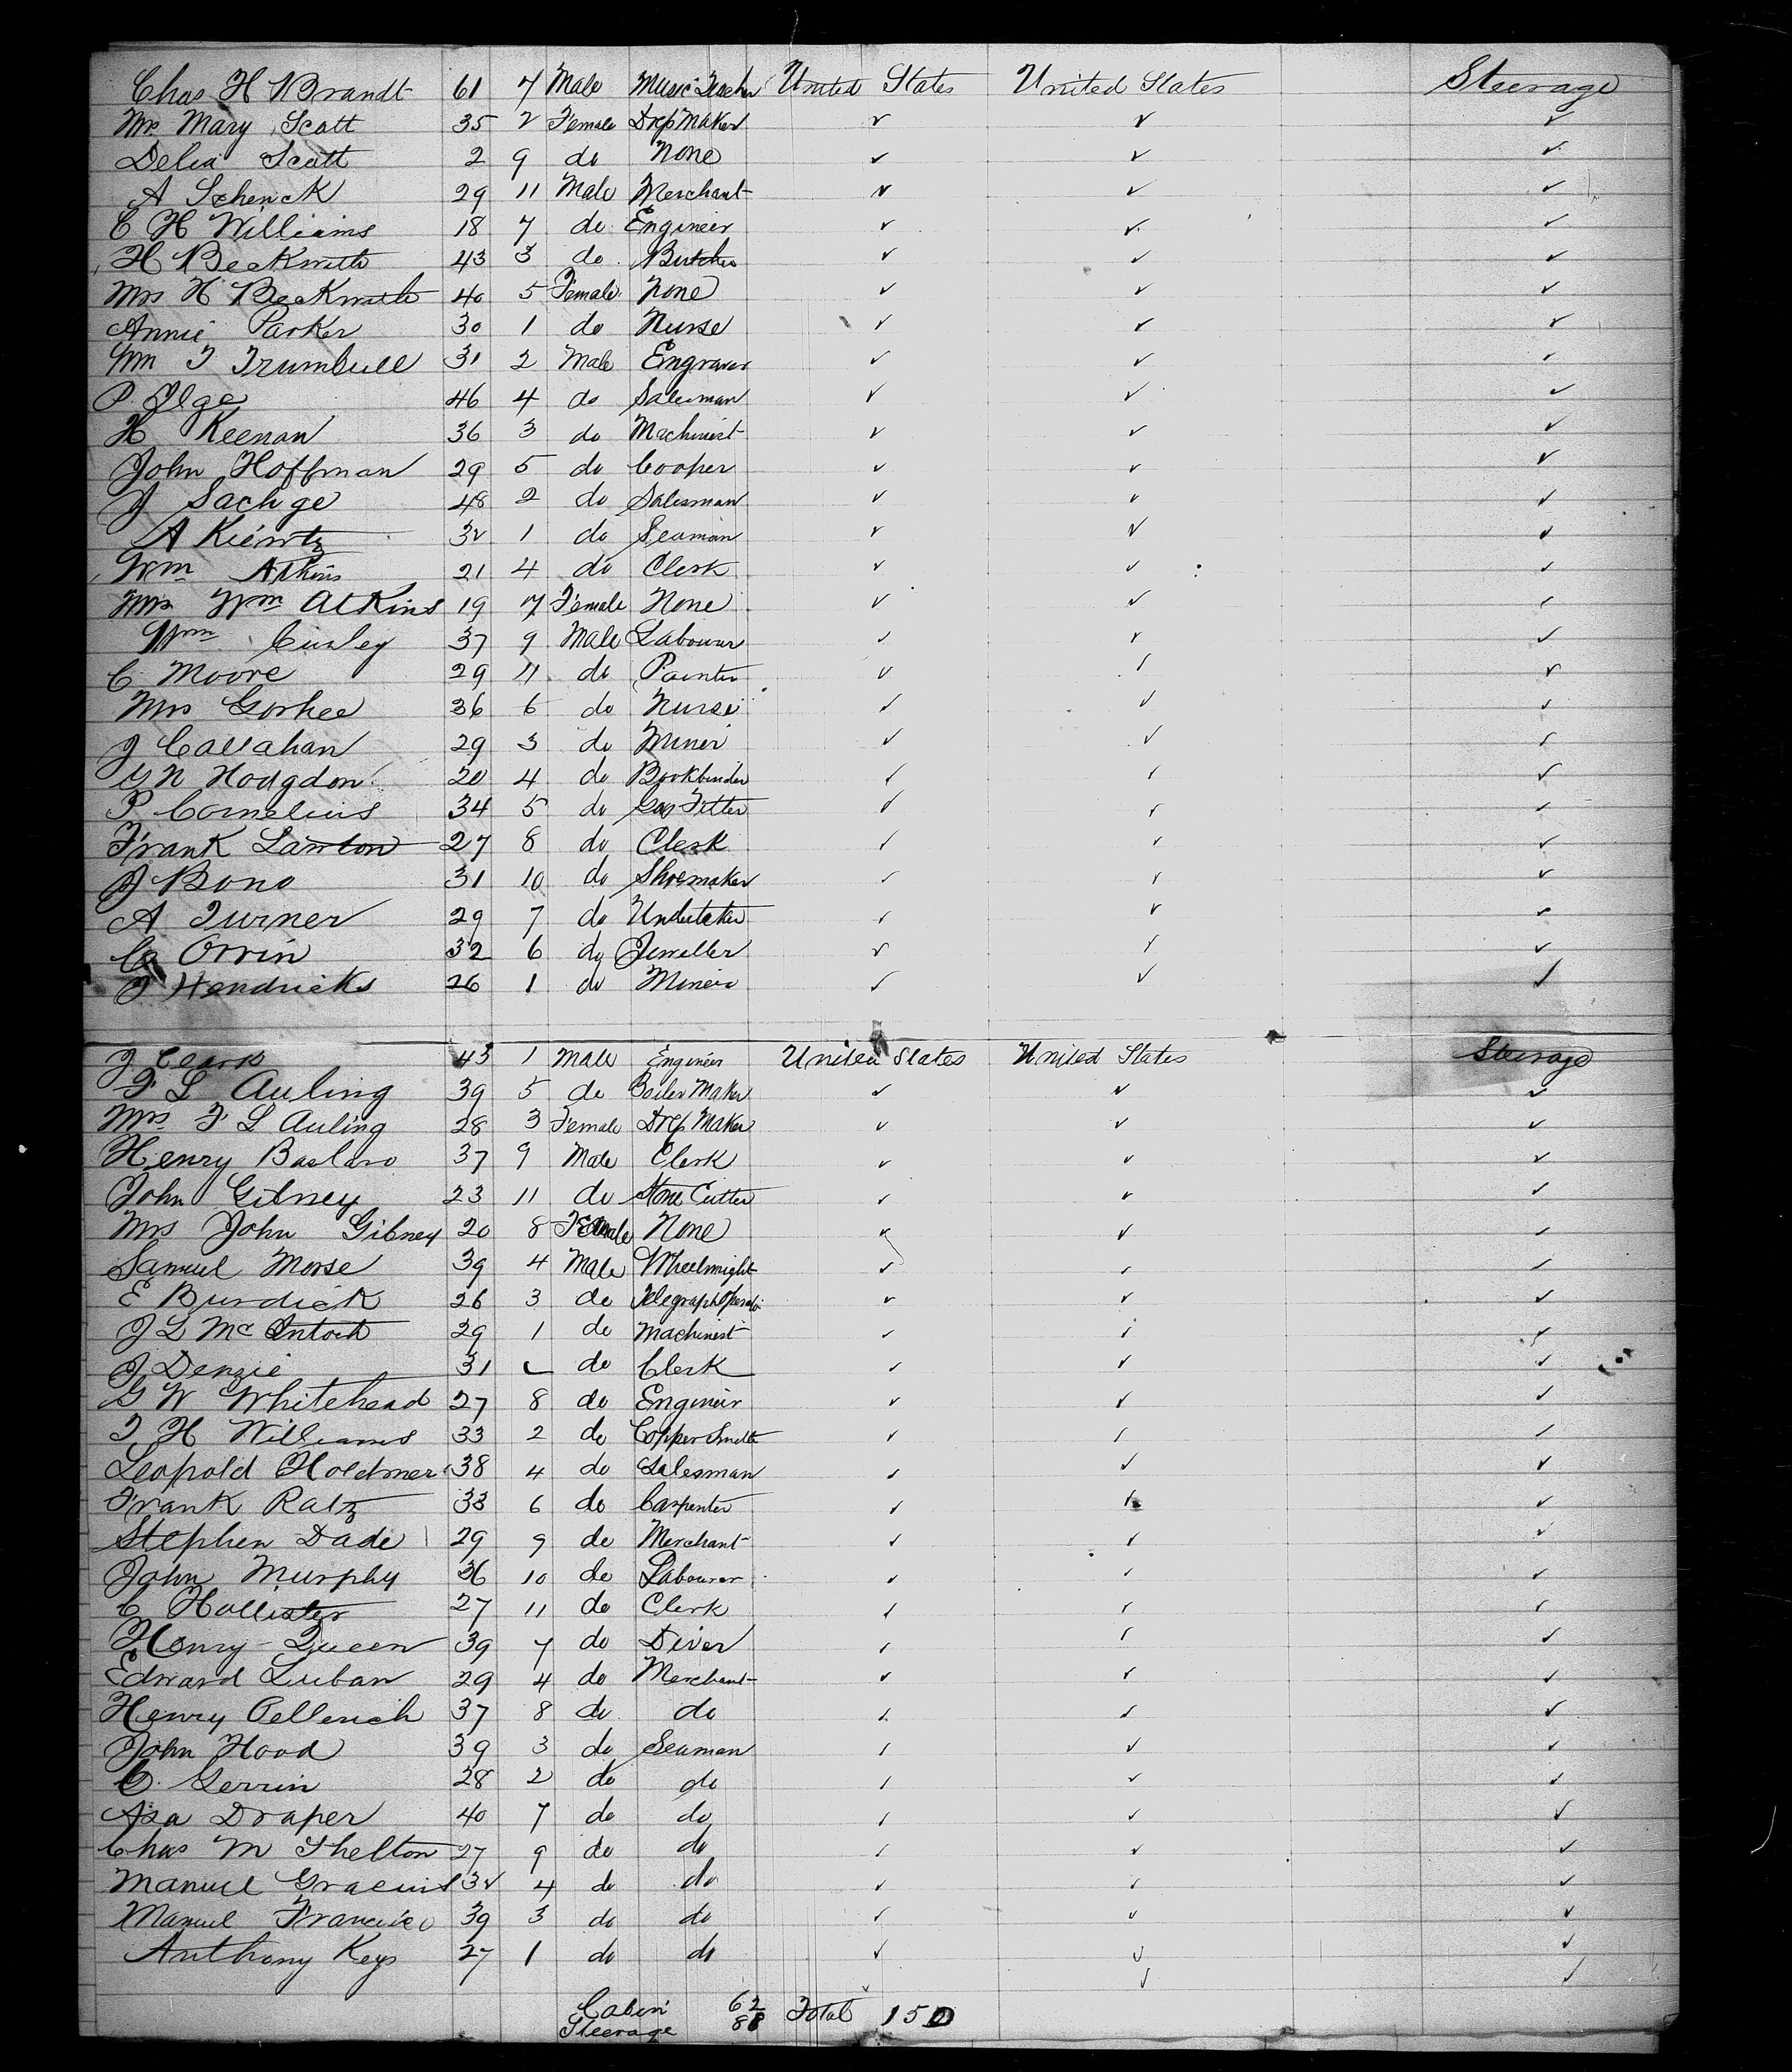 Chas H Brandt 61 7 Male Music Teacher United States United States Steerage
Mrs Mary Scott 35 2 Female Dress Maker ✓ ✓ ✓
Delia Scott 2 9 do None ✓ ✓ ✓
A Schenck 29 11 Male Merchant ✓ ✓ ✓
C H Williams 18 7 do Engineer ✓ ✓ ✓
H Beckwith 43 3 do Butcher ✓ ✓ ✓
Mrs H Beckwith 40 5 Female None ✓ ✓ ✓
Annie Parker 30 1 do Nurse ✓ ✓ ✓
Wm T Trumbull 31 2 Male Engraver ✓ ✓ ✓
P. Ilge 46 4 do Salesman ✓ ✓ ✓
H Keenan 36 3 do Machinist ✓ ✓ ✓
John Hoffman 29 5 do Cooper ✓ ✓ ✓
J Sachge 48 2 do Salesman ✓ ✓ ✓
A 32 1 do Seaman ✓ ✓ ✓
Wm Atkins 21 4 do Clerk ✓ ✓ ✓
Mrs Wm Atkins 19 7 Female None ✓ ✓ ✓
Wm Curley 37 9 Male Labourer ✓ ✓ ✓
C Moore 29 11 do Painter ✓ ✓ ✓
Mrs Gorhee 36 6 do Nurse ✓ ✓ ✓
J Callahan 29 3 do Miner ✓ ✓ ✓
G N Hodgdon 20 4 do Bookbinder ✓ ✓ ✓
P Cornelius 34 5 do Gas Fitter ✓ ✓ ✓
Frank Lawton 27 8 do Clerk ✓ ✓ ✓
J Bono 31 10 do Shoemaker ✓ ✓ ✓
A Turner 29 7 do Undertaker ✓ ✓ ✓
Orrin 32 6 do Jeweller ✓ ✓ ✓
J Hendricks 26 1 do Miner ✓ ✓ ✓
J Clark 43 1 Male Engineer United States United States Steerage
F L Auling 39 5 do Boiler Maker ✓ ✓ ✓
Mrs F L Auling 28 3 Female Dress Maker ✓ ✓ ✓
Henry 37 9 Male Clerk ✓ ✓ ✓
John Gibney 23 11 do Stone Cutter ✓ ✓ ✓
Mrs John Gibney 20 8 Female None ✓ ✓ ✓
Samuel Morse 39 4 Male Wheelwright ✓ ✓ ✓
E Burdick 26 3 do Telegraph Operator ✓ ✓ ✓
J L McIntosh 29 1 do Machinist ✓ ✓ ✓
J Denzie 31 do Clerk ✓ ✓ ✓
G W Whitehead 27 8 do Engineer ✓ ✓ ✓
T H Williams 33 2 do Copper Smith ✓ ✓ ✓
Leopold Holdmer 38 4 do Salesman ✓ ✓ ✓
Frank Ratz 33 6 do Carpenter ✓ ✓ ✓
Stephen Dade 29 9 do Merchant ✓ ✓ ✓
John Murphy 36 10 do Labourer ✓ ✓ ✓
C Hollister 27 11 do Clerk ✓ ✓ ✓
Henry Queen 39 7 do Diver ✓ ✓ ✓
Edward Luban 29 4 do Merchant ✓ ✓ ✓
Henry Pellerich 37 8 do do ✓ ✓ ✓
John Hood 39 3 do Seaman ✓ ✓ ✓
C. Gerrin 28 2 do do ✓ ✓ ✓
Asa Draper 40 7 do do ✓ ✓ ✓
Chas M Shelton 27 9 do do ✓ ✓ ✓
Manuel 32 4 do do ✓ ✓ ✓
Manuel Francisco 39 3 do do ✓ ✓ ✓
Anthony Keys 27 1 do do ✓ ✓ ✓
Cabin 62 Total 150
Steerage 88